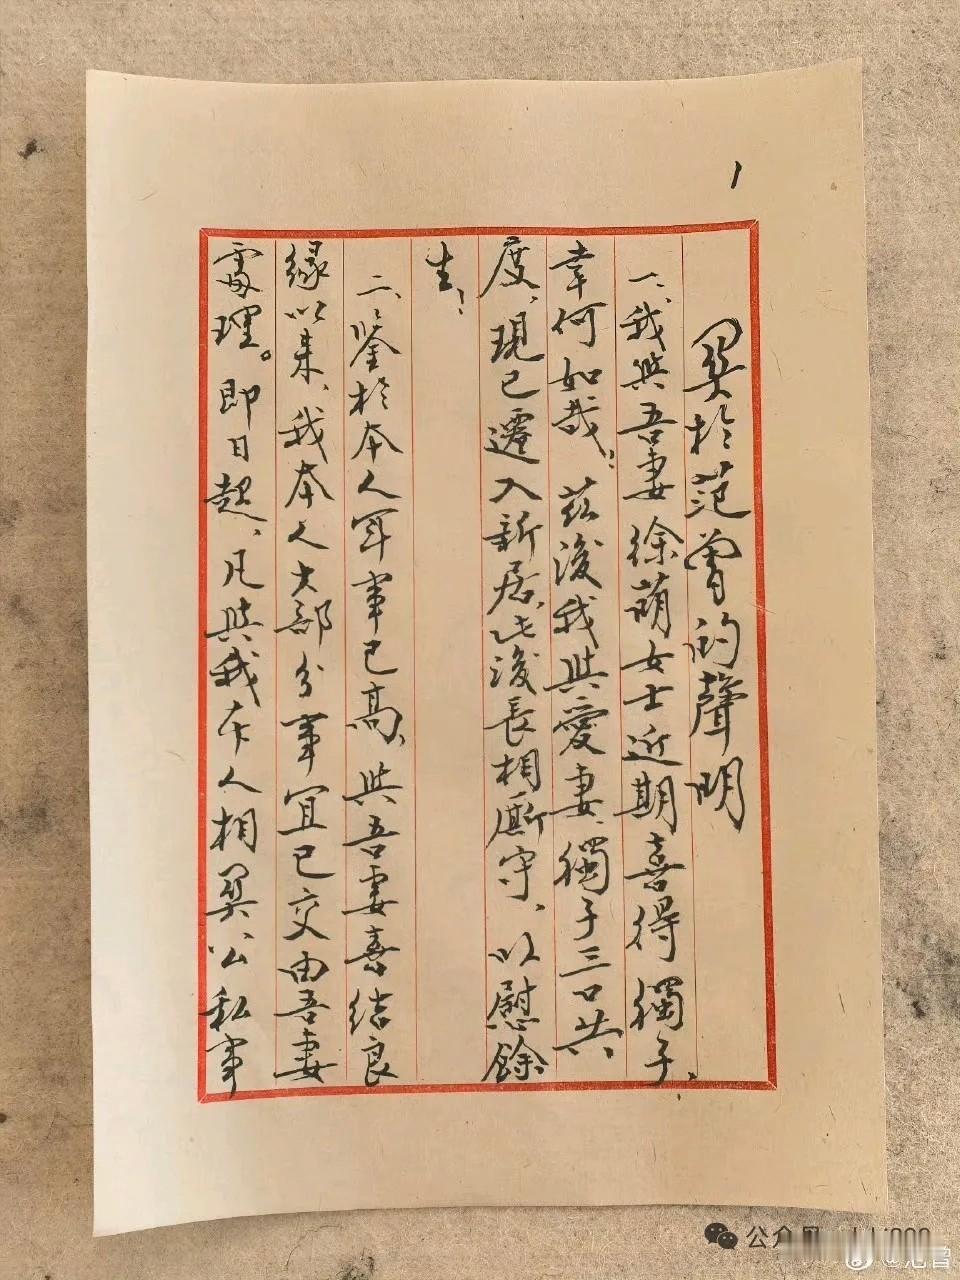 1
関於范曾的聲明
一、我與吾妻徐萌女士近期喜得獨子、
幸何如哉。茲後我與愛妻、獨子三口共
度、現已遷入新居、此後長相廝守、以慰餘
生；
二、鑒於本人年事已高、與吾妻喜結良
緣以來、我本人大部分事宜已交由吾妻
處理。即日起、凡與我本人相関公私事
公众号
@范曾